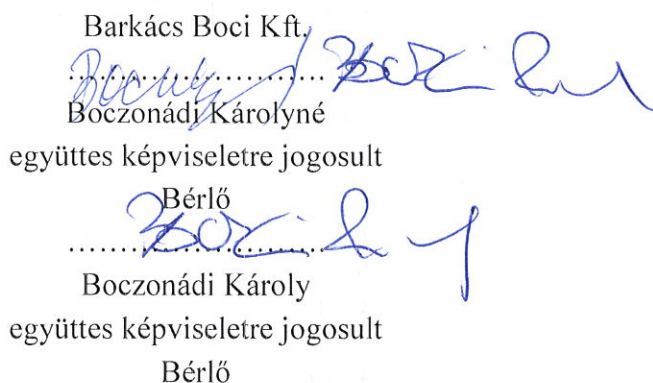 Barkács Boci Kft.
..............................
Boczonádi Károlyné
együttes képviseletre jogosult
Bérlő
..............................
Boczonádi Károly
együttes képviseletre jogosult
Bérlő